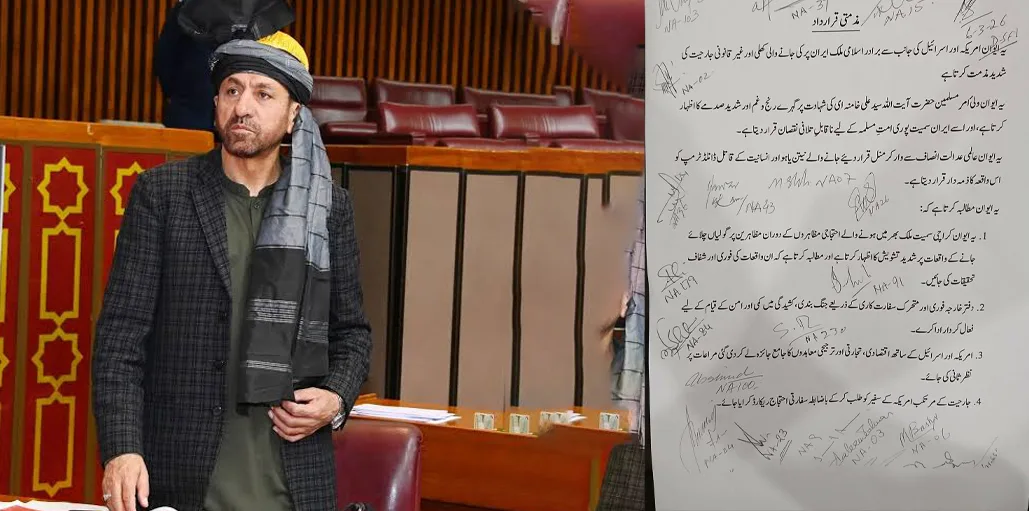 NA-103
NA-37
NA 15
6-3-26
مذمتی قرارداد
یہ ایوان امریکہ اور اسرائیل کی جانب سے برادر اسلامی ملک ایران پر کی جانے والی کھلی اور غیر قانونی جارحیت کی
شدید مذمت کرتا ہے
NA-02
یہ ایوان ولی امر مسلمین حضرت آیت اللہ سید علی خامنہ ای کی شہادت پر گہرے رنج و غم اور شدید صدمے کا اظہار
کرتا ہے، اور اسے ایران سمیت پوری امت مسلمہ کے لیے ناقابلِ تلافی نقصان قرار دیتا ہے۔
یہ ایوان عالمی عدالت انصاف سے وار کرمنل قرار دیئے جانے والے نیتن یاہو اور انسانیت کے قاتل ڈانلڈ ٹرمپ کو
اس واقعہ کا ذمہ دار قرار دیتا ہے۔
NA07
NA/43
NA26
یہ ایوان مطالبہ کرتا ہے کہ:
1. یہ ایوان کراچی سمیت ملک بھر میں ہونے والے احتجاجی مظاہروں کے دوران مظاہرین پر گولیاں چلائے
جانے کے واقعات پر شدید تشویش کا اظہار کرتا ہے اور مطالبہ کرتا ہے کہ ان واقعات کی فوری اور شفاف
تحقیقات کی جائیں۔
NA-91
2. دفتر خارجہ فوری اور متحرک سفارت کاری کے ذریعے جنگ بندی، کشیدگی میں کمی اور امن کے قیام کے لیے
فعال کردار ادا کرے۔
3. امریکہ اور اسرائیل کے ساتھ اقتصادی، تجارتی اور تزویتی معاہدوں کا جامع جائزہ لے کر دی گئی مراعات پر
نظر ثانی کی جائے۔
NA100
4. جارحیت کے مرتکب امریکہ کے سفیر کو طلب کر کے باضابطہ سفارتی احتجاج ریکارڈ کرایا جائے۔
NA-04
NA-23
NA-03
M Bashir
NA-06